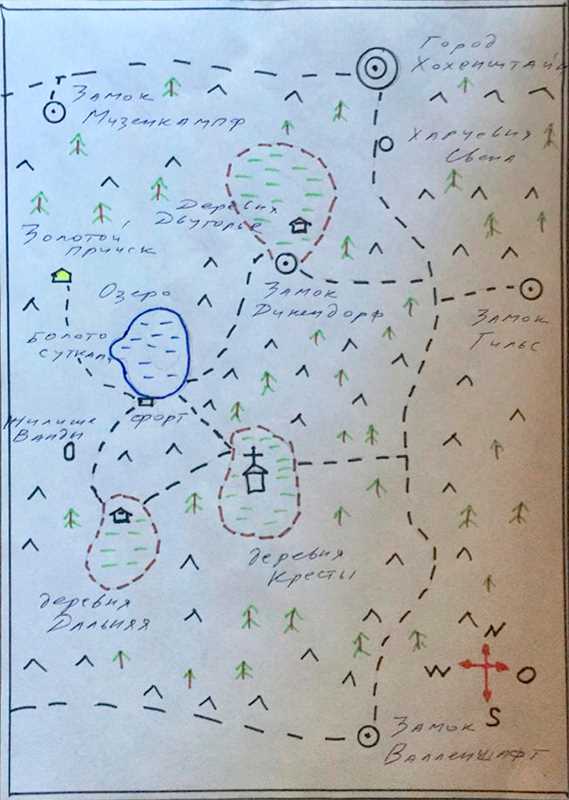 Город
Хохенштайн
Замок
Мизенкампф
Харчевня
Свена
Деревня
Двугорье
Золотой
прииск
Озеро
Замок
Дикендорф
Замок
Гильс
Болото
суткам
Жилище
Ванды
форт
деревня
Кресты
деревня
Дальняя
N
W
O
S
Замок
Валленшафт